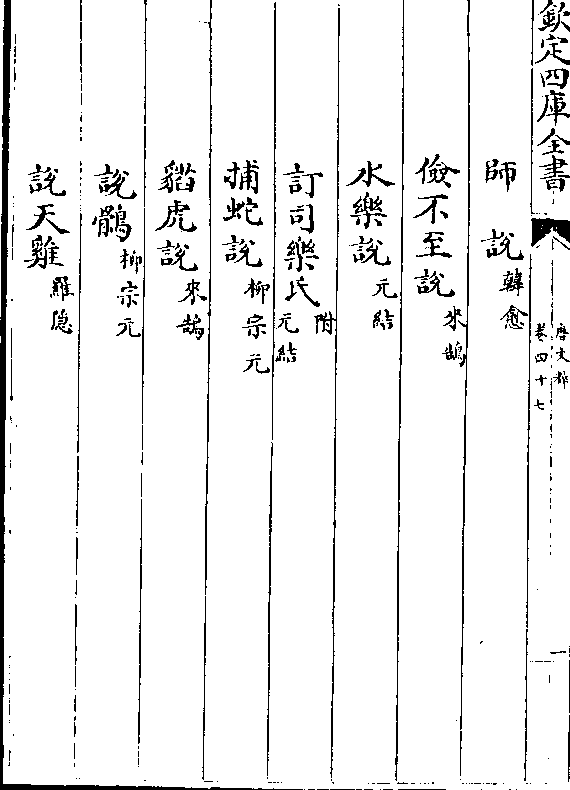 欽定四庫全書
唐文粹
卷四十七
一
師說韓愈
儉不至說來鵠
水樂說元結
訂司樂氏附元結
捕蛇說柳宗元
貓虎說來鵠
說鶻柳宗元
說天雞羅隱